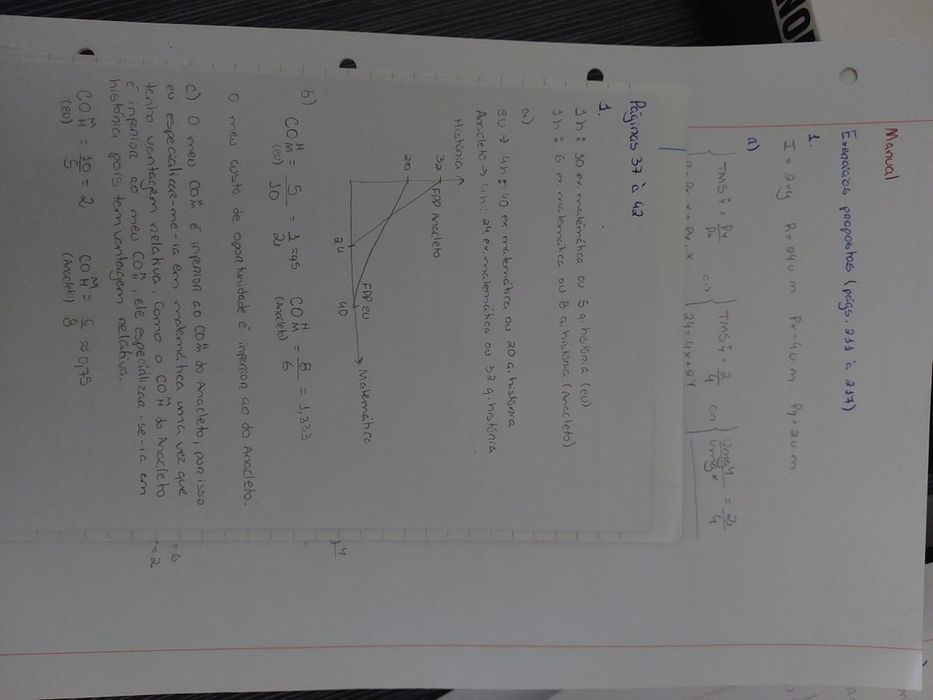 Manual
Exercícios propostos (págs. 211 à 217)
1.
I = 2xy R = 24 u m Px = 4 u.m. Py = 2 u m
a)
TMS = Px/Py <=> TMS = 2/4 <=> Umgy/Umgx = 2/4
24 = 4x + 2y
Páginas 37 à 42
1.
1h: 10 ex. matemática ou 5 q. história (eu)
1h: 6 ex. matemática ou 8 q. história (Anacleto)
a)
eu → 4h: 40 ex matemática ou 20 q. história
Anacleto → 4h: 24 ex. matemática ou 32 q. história
História
32 FPP Anacleto
20
FPP eu
24 40 Matemática
b)
CO H M (eu) = 5/10 = 1/2 = 95 CO H M (Anacleto) = 8/6 = 1,333
O meu custo de oportunidade é inferior ao do Anacleto.
c) O meu CO é inferior ao CO do Anacleto, por isso
eu especializar-me-ia em matemática uma vez que
tenho vantagem relativa. Como o CO do Anacleto
é inferior ao meu CO, ele especializar-se-ia em
história pois tem vantagem relativa.
CO M H (eu) = 10/5 = 2 CO M H (Anacleto) = 6/8 ≈ 0,75
= 6
= 2